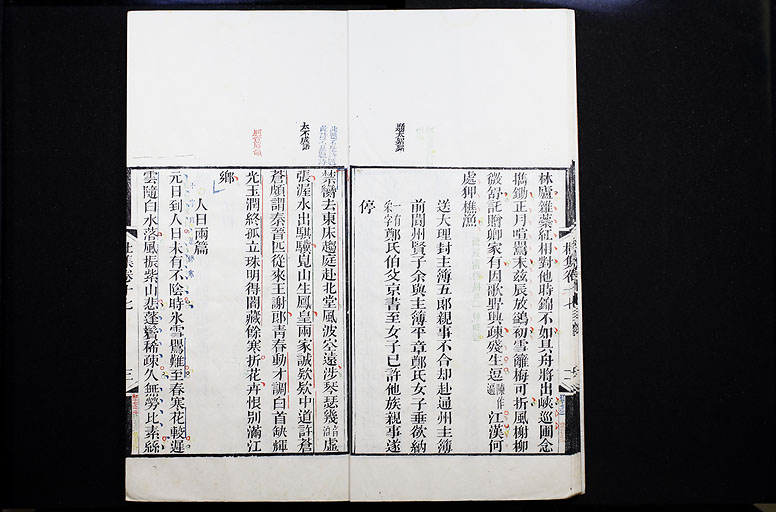 林廬雜蘂紅相對他時錦不如具舟將出峽巡圃念
攜鋤正月喧鶯末茲辰放鷁初雪籬梅可折風榭柳
微舒託贈卿家有因歌野興疎殘生逗江漢何
處狎樵漁
送大理封主簿五郎親事不合却赴通州主簿
前閬州賢子余與主簿平章鄭氏女子垂欲納
鄭氏伯父京書至女子已許他族親事遂
停
禁臠去東床趨庭赴北堂風波空遠涉琴瑟幾虛
張渥水出騏驥崑山生鳳皇兩家誠欵欵中道許蒼
蒼頗謂秦晉匹從來王謝郎青春動才調白首缺輝
光玉潤終孤立珠明得闇藏餘寒折花卉恨別滿江
鄉
人日兩篇
元日到人日未有不陰時氷雪鶯難至春寒花較遲
雲隨白水落風振紫山悲蓬鬢稀疎久無勞比素絲